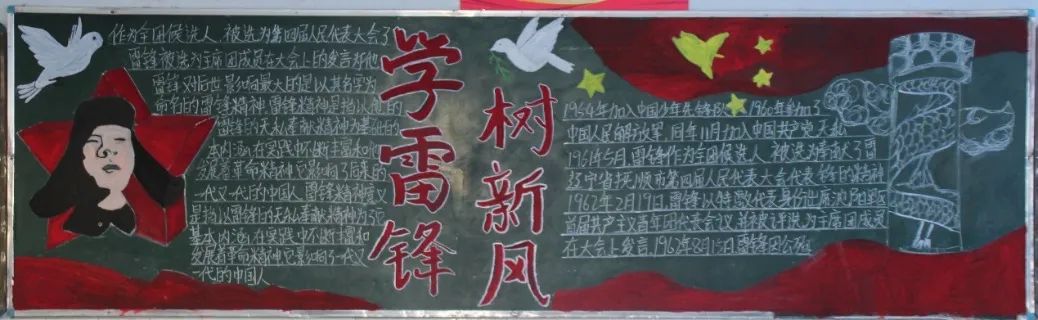 作为全团候选人，被选为第四届人民代表大会了
雷锋被选为主席团成员在大会上的发言却他
雷锋对后世影响最大的是以其名字为
命名的雷锋精神雷锋精神是指以他的
雷锋的无私奉献精神为基础的
本内涵在实践中不断丰富和
发展着革命精神它影响了后来的
一代又一代的中国人雷锋精神意义
是指以雷锋的无私奉献精神为了它
基本内涵在实践中不断丰富和
发展着革命精神它影响了一代又
一代的中国人
学雷锋
树新风
1954年加入中国少年先锋队 1960年参加了
中国人民解放军，同年11月加入中国共产党无私
1961年5月，雷锋作为全团候选人，被选为 奉献了雷
辽宁省抚顺市第四届人民代表大会代表 锋的精神
1962年2月19日雷锋以特邀代表身份出席沈阳军区
首届共产主义青年团代表会议，并被评选为主席团成员
在大会上发言，1962年8月15日雷锋因公殉